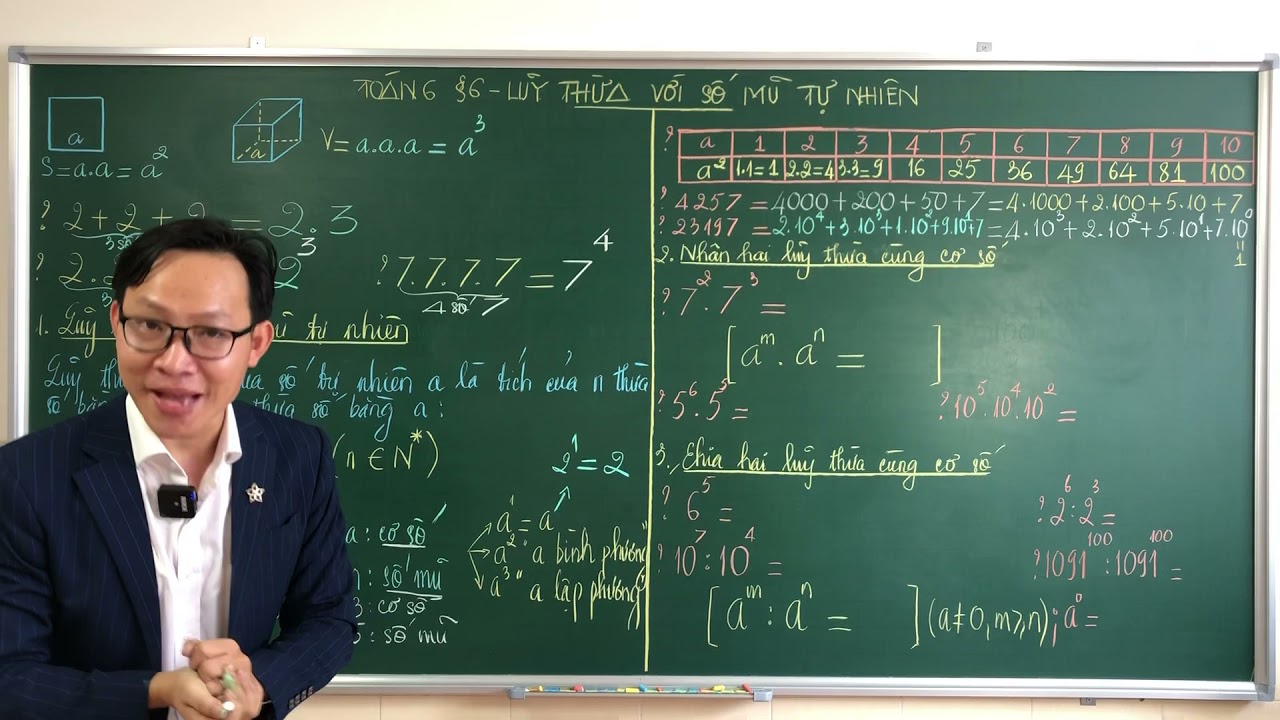 TOÁN 6 §6 - LŨY THỪA VỚI SỐ MŨ TỰ NHIÊN
a
S = a.a = a²
a
V = a.a.a = a³
? 2 + 2 + 2 = 2.3
3 số
? 2. 2³
3
? 7.7.7.7 = 7⁴
4 số 7
1. Lũy tự nhiên
Lũy số tự nhiên a là tích của n thừa
số bằng thừa số bằng a:
(n ∈ N*)
2¹ = 2
a: cơ số
: số mũ
3: cơ số
: số mũ
a¹ = a
a² "a bình phương"
a³ "a lập phương"
? a 1 2 3 4 5 6 7 8 9 10
a² 1.1=1 2.2=4 3.3=9 16 25 36 49 64 81 100
? 4257 = 4000 + 200 + 50 + 7 = 4.1000 + 2.100 + 5.10 + 7
? 23197 = 2.10⁴ + 3.10³ + 1.10² + 9.10¹ + 7 = 4.10³ + 2.10² + 5.10¹ + 7.10⁰
1
2. Nhân hai luỹ thừa cùng cơ số
? 7² . 7³ =
[a^m . a^n = ]
? 5⁶ . 5³ =
? 10⁵ . 10⁴ . 10² =
3. Chia hai luỹ thừa cùng cơ số
? 6⁵ =
? 2⁶ : 2³ =
? 10⁷ : 10⁴ =
? 1091¹⁰⁰ : 1091¹⁰⁰ =
[a^m : a^n = ] (a ≠ 0, m ⩾ n); a⁰ =